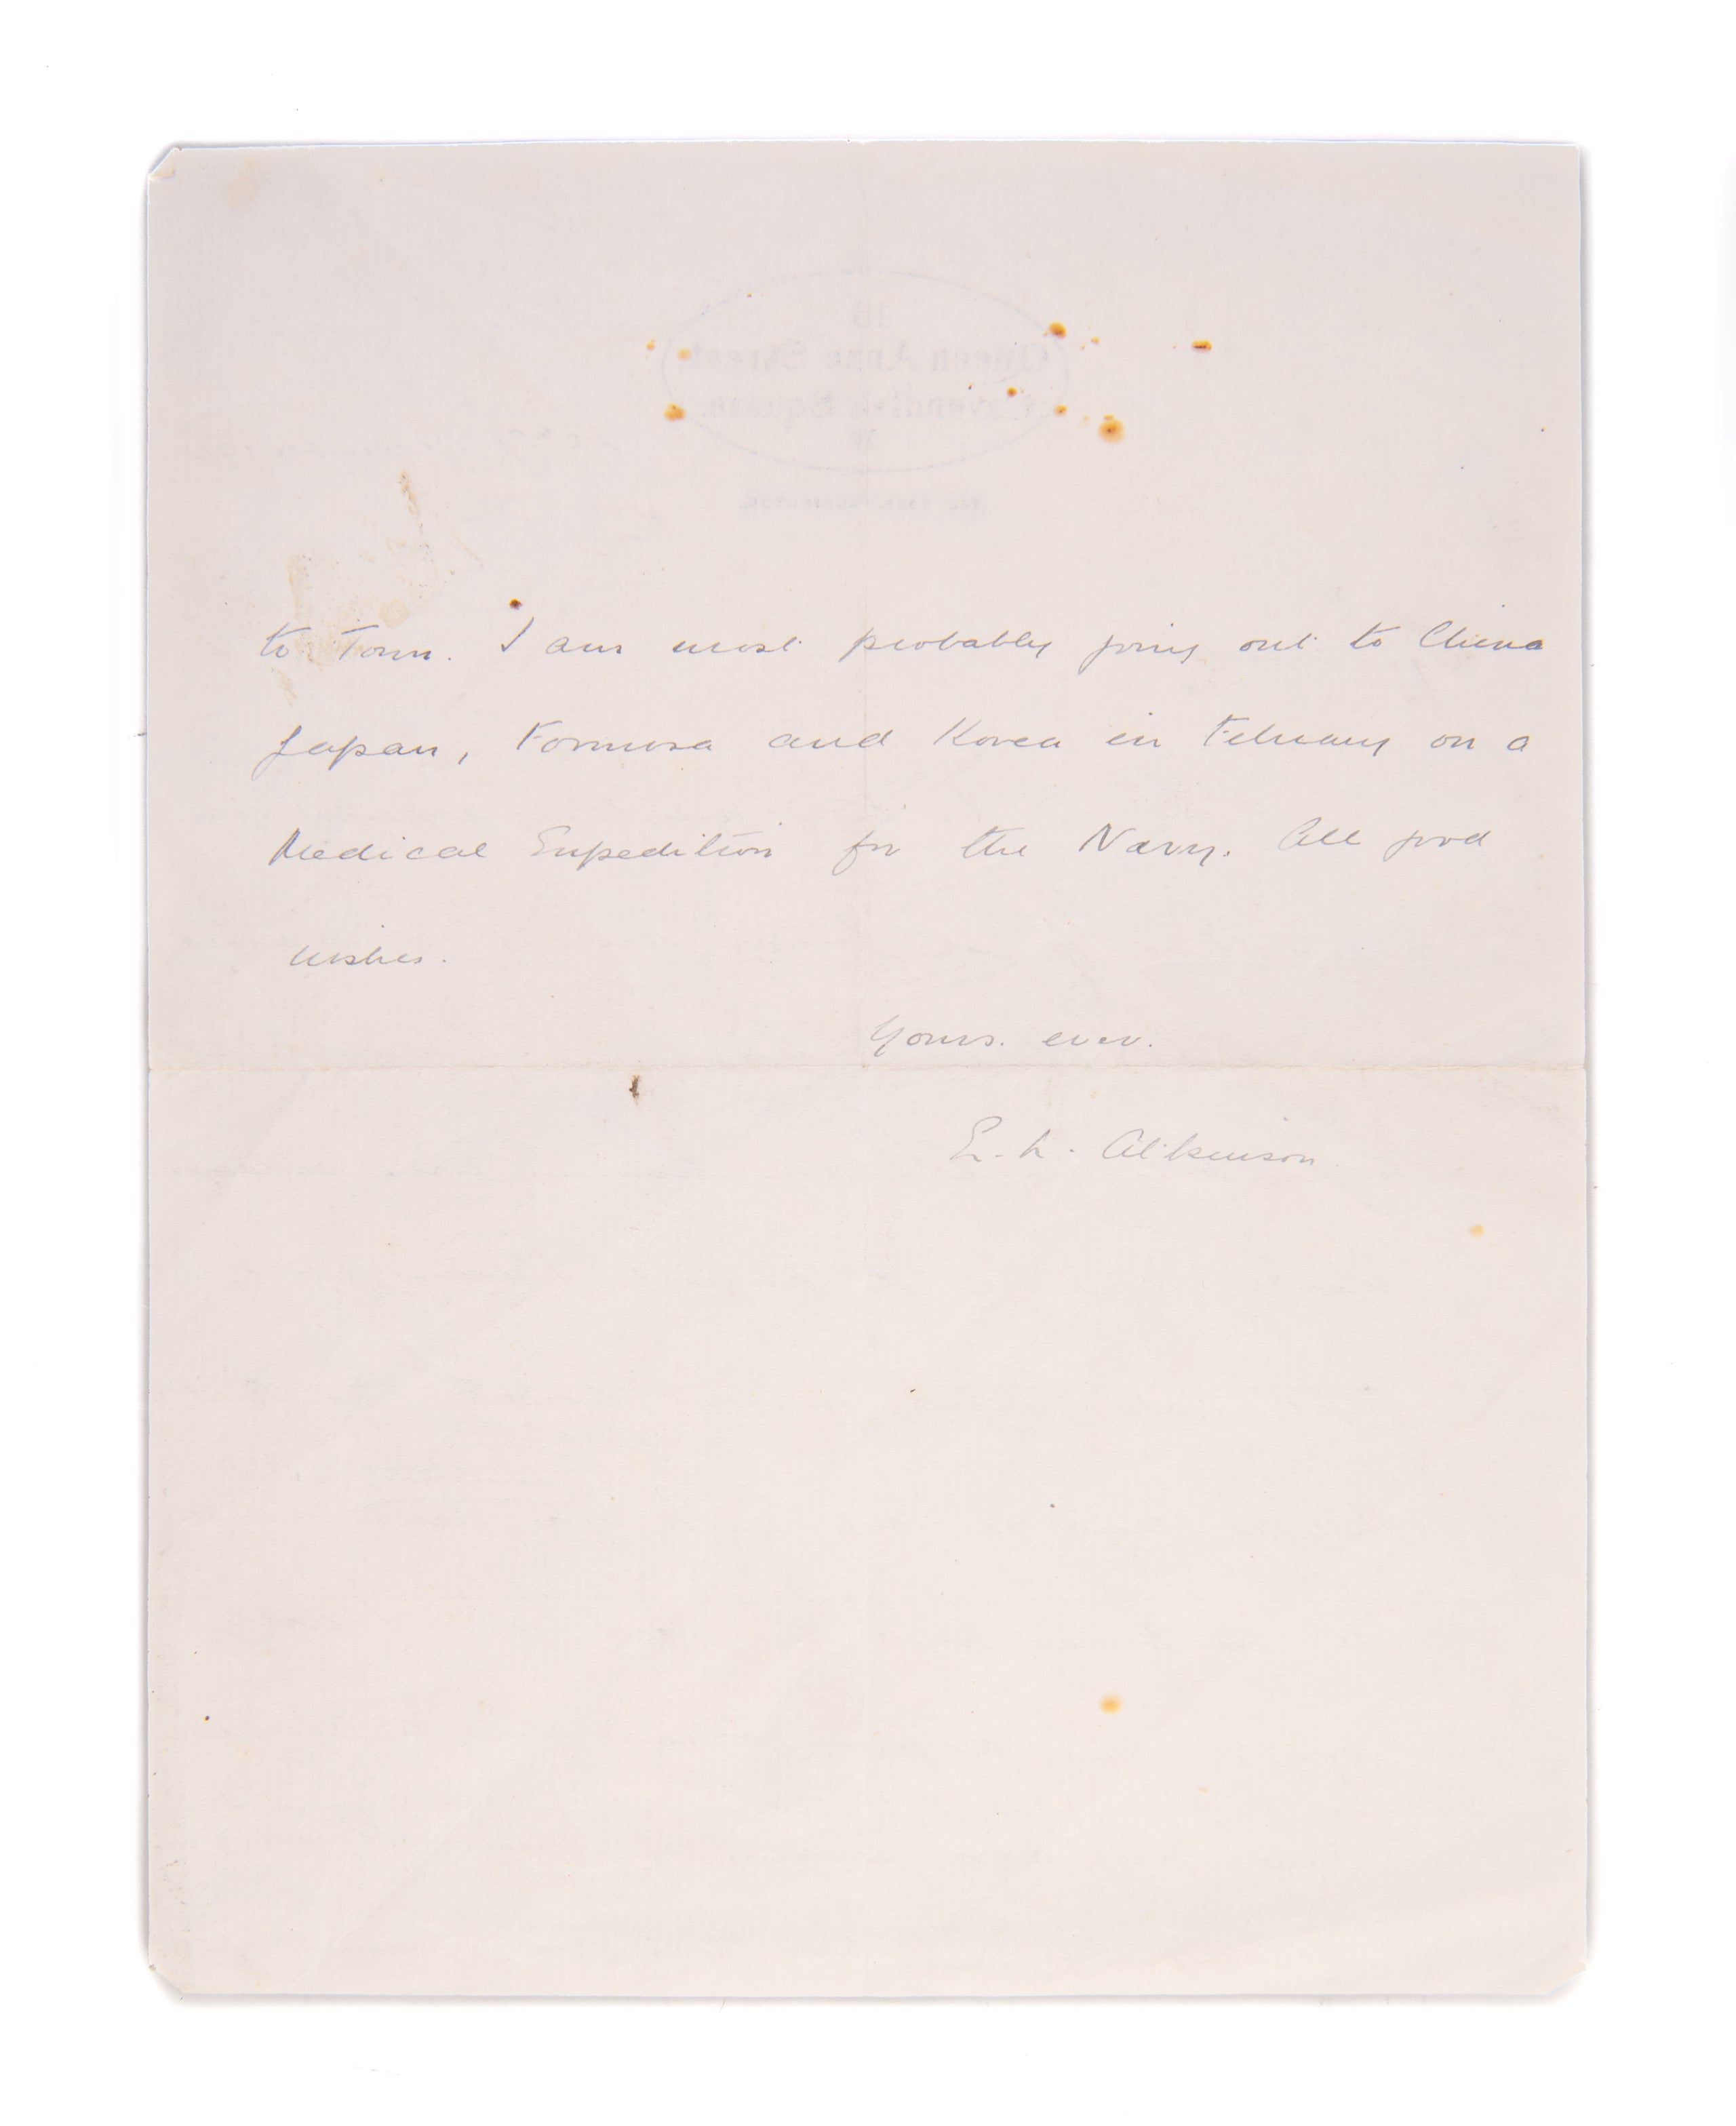 to Town. I am most probably going out to China
Japan, Formosa and Korea in February on a
Medical Expedition for the Navy. All good
wishes.
Yours. ever.
E. L. Atkinson
Queen Anne Street
Cavendish Square.